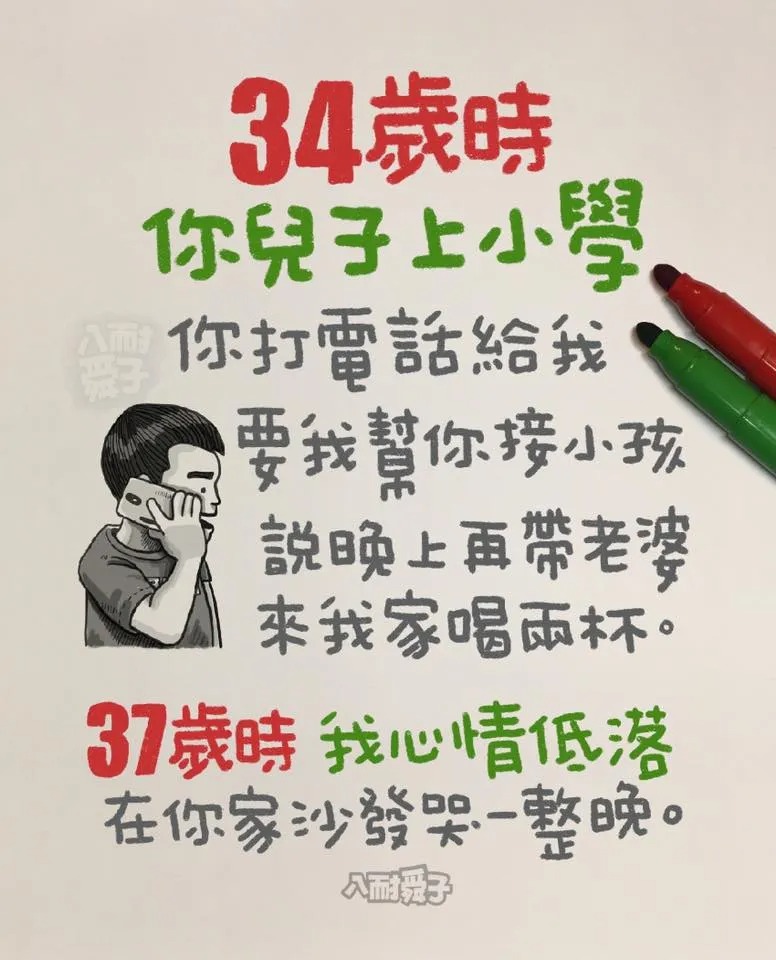 34歲時
你兒子上小學
八耐舜子
你打電話給我
要我幫你接小孩
說晚上再帶老婆
來我家喝兩杯。
37歲時 我心情低落
在你家沙發哭一整晚。
八耐舜子